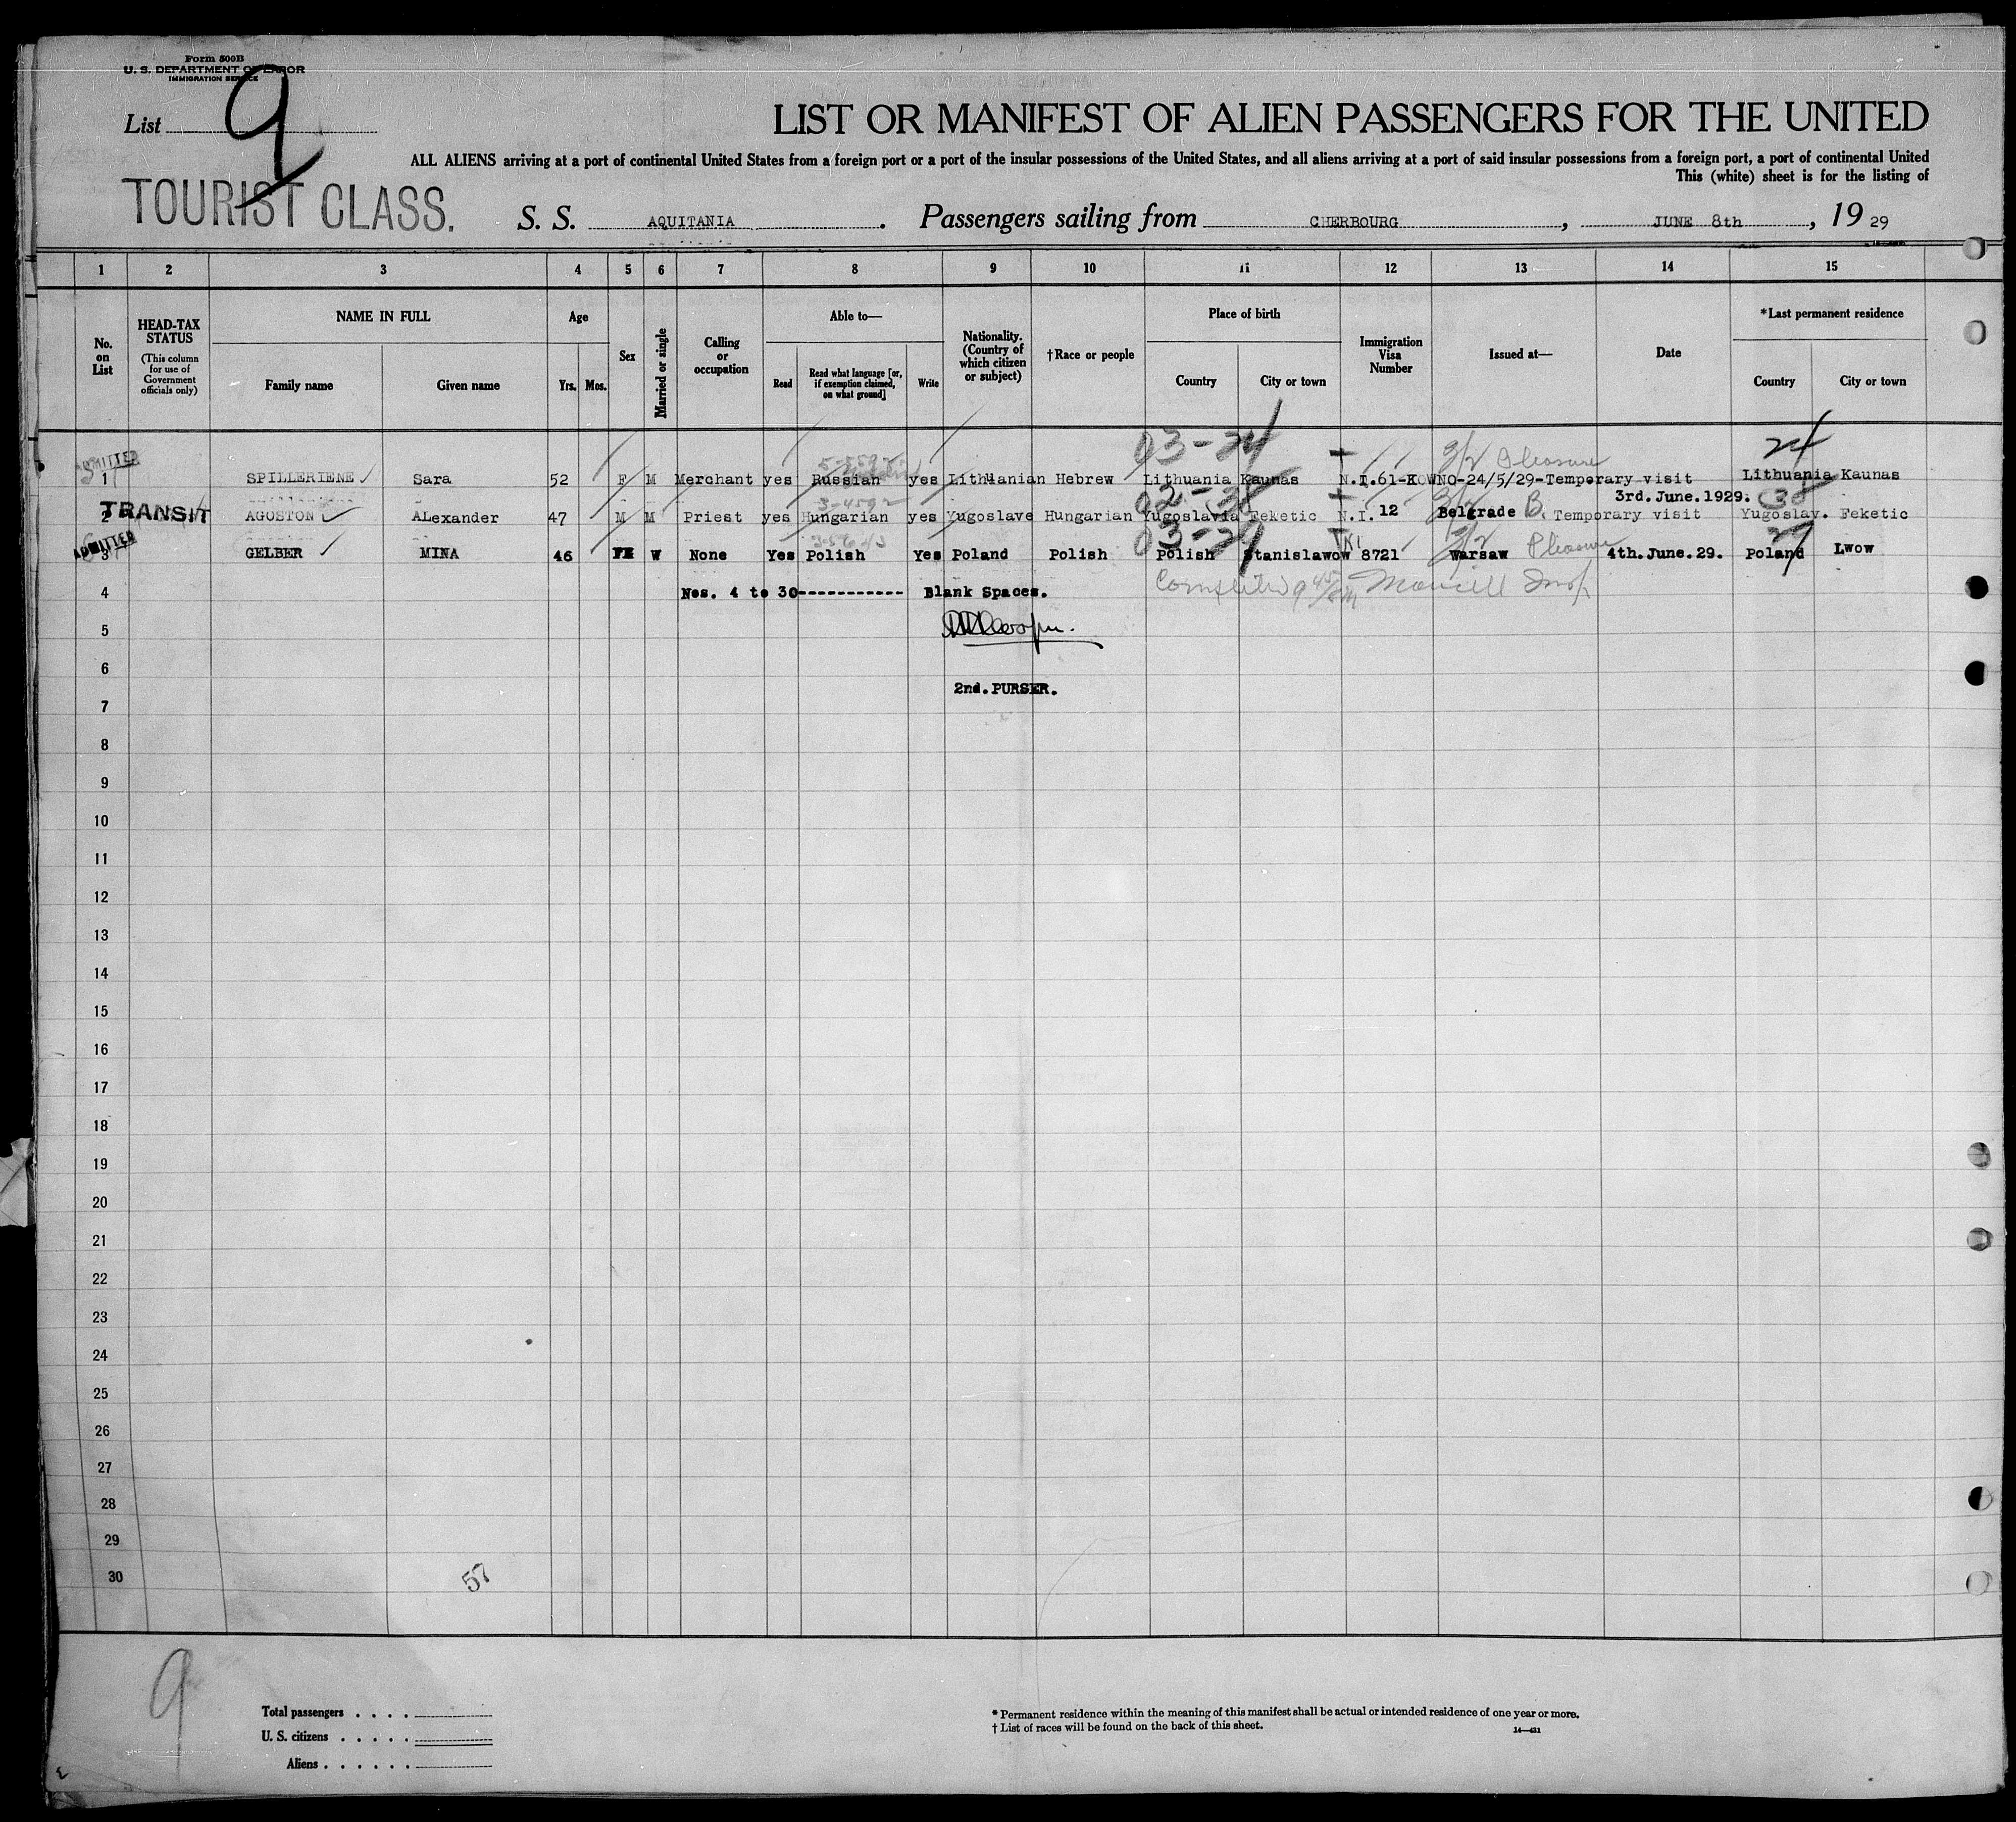 Form 500B
U. S. DEPARTMENT OF LABOR
IMMIGRATION SERVICE
List 9
LIST OR MANIFEST OF ALIEN PASSENGERS FOR THE UNITED
ALL ALIENS arriving at a port of continental United States from a foreign port or a port of the insular possessions of the United States, and all aliens arriving at a port of said insular possessions from a foreign port, a port of continental United
This (white) sheet is for the listing of
TOURIST CLASS.
S. S. AQUITANIA. Passengers sailing from CHERBOURG, JUNE 8th, 1929
1 2 3 4 5 6 7 8 9 10 11 12 13 14 15
No. on List
HEAD-TAX STATUS (This column for use of Government officials only)
NAME IN FULL
Family name Given name
Age
Yrs. Mos.
Sex
Married or single
Calling or occupation
Able to—
Read
Read what language [or, if exemption claimed, on what ground]
Write
Nationality. (Country of which citizen or subject)
†Race or people
Place of birth
Country City or town
Immigration Visa Number
Issued at—
Date
*Last permanent residence
Country City or town
03-24 3/2 Pleasure 24
ADMITTED
1 SPILLERIENE Sara 52 F M Merchant yes Russian yes Lithuanian Hebrew Lithuania Kaunas N.I.61-KOWNO-24/5/29-Temporary visit Lithuania Kaunas
3-4592 02-38 3rd.June.1929. 38
TRANSIT
2 AGOSTON ALexander 47 M M Priest yes Hungarian yes Yugoslave Hungarian Yugoslavia Feketic N.I. 12 Belgrade B. Temporary visit Yugoslav. Feketic
ADMITTED
03-29 3/2 Pleasure 29
3 GELBER MINA 46 FE W None Yes Polish Yes Poland Polish Polish Stanislawow 8721 Warsaw 4th.June.29. Poland Lwow
4 Nos. 4 to 30----------- Blank Spaces.
5
6
2nd.PURSER.
7
8
9
10
11
12
13
14
15
16
17
18
19
20
21
22
23
24
25
26
27
28
29
30
57
9
Total passengers . . . .
U. S. citizens . . . . .
Aliens . . . . . .
* Permanent residence within the meaning of this manifest shall be actual or intended residence of one year or more.
† List of races will be found on the back of this sheet.
14—421